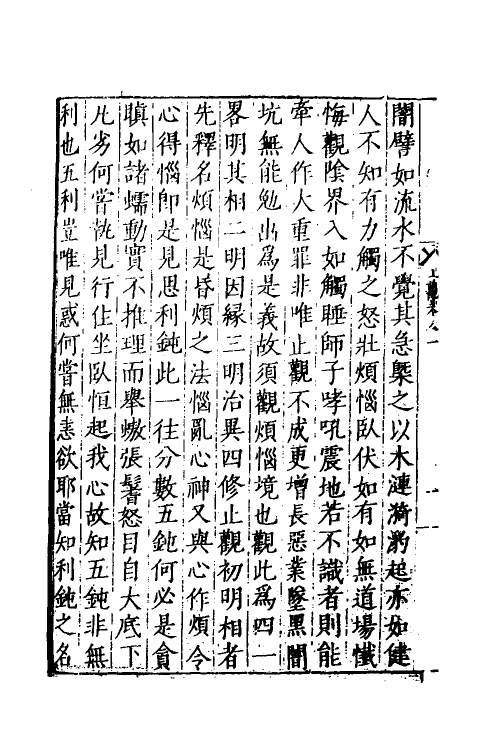 闇譬如流水不覺其急槩之以木漣漪豹起亦如健
人不知有力觸之怒壯煩惱臥伏如有如無道場懺
悔觀陰界入如觸睡師子哮吼震地若不識者則能
牽人作大重罪非唯止觀不成更增長惡業墜黑闇
坑無能勉出為是義故須觀煩惱境也觀此為四一
畧明其相二明因緣三明治異四修止觀初明相者
先釋名煩惱是昏煩之法惱亂心神又與心作煩令
心得惱即是見思利鈍此一往分數五鈍何必是貪
瞋如諸蠕動實不推理而舉螫張鬐怒目自大底下
凡劣何嘗執見行住坐臥恒起我心故知五鈍非無
利也五利豈唯見惑何嘗無恚欲耶當知利鈍之名